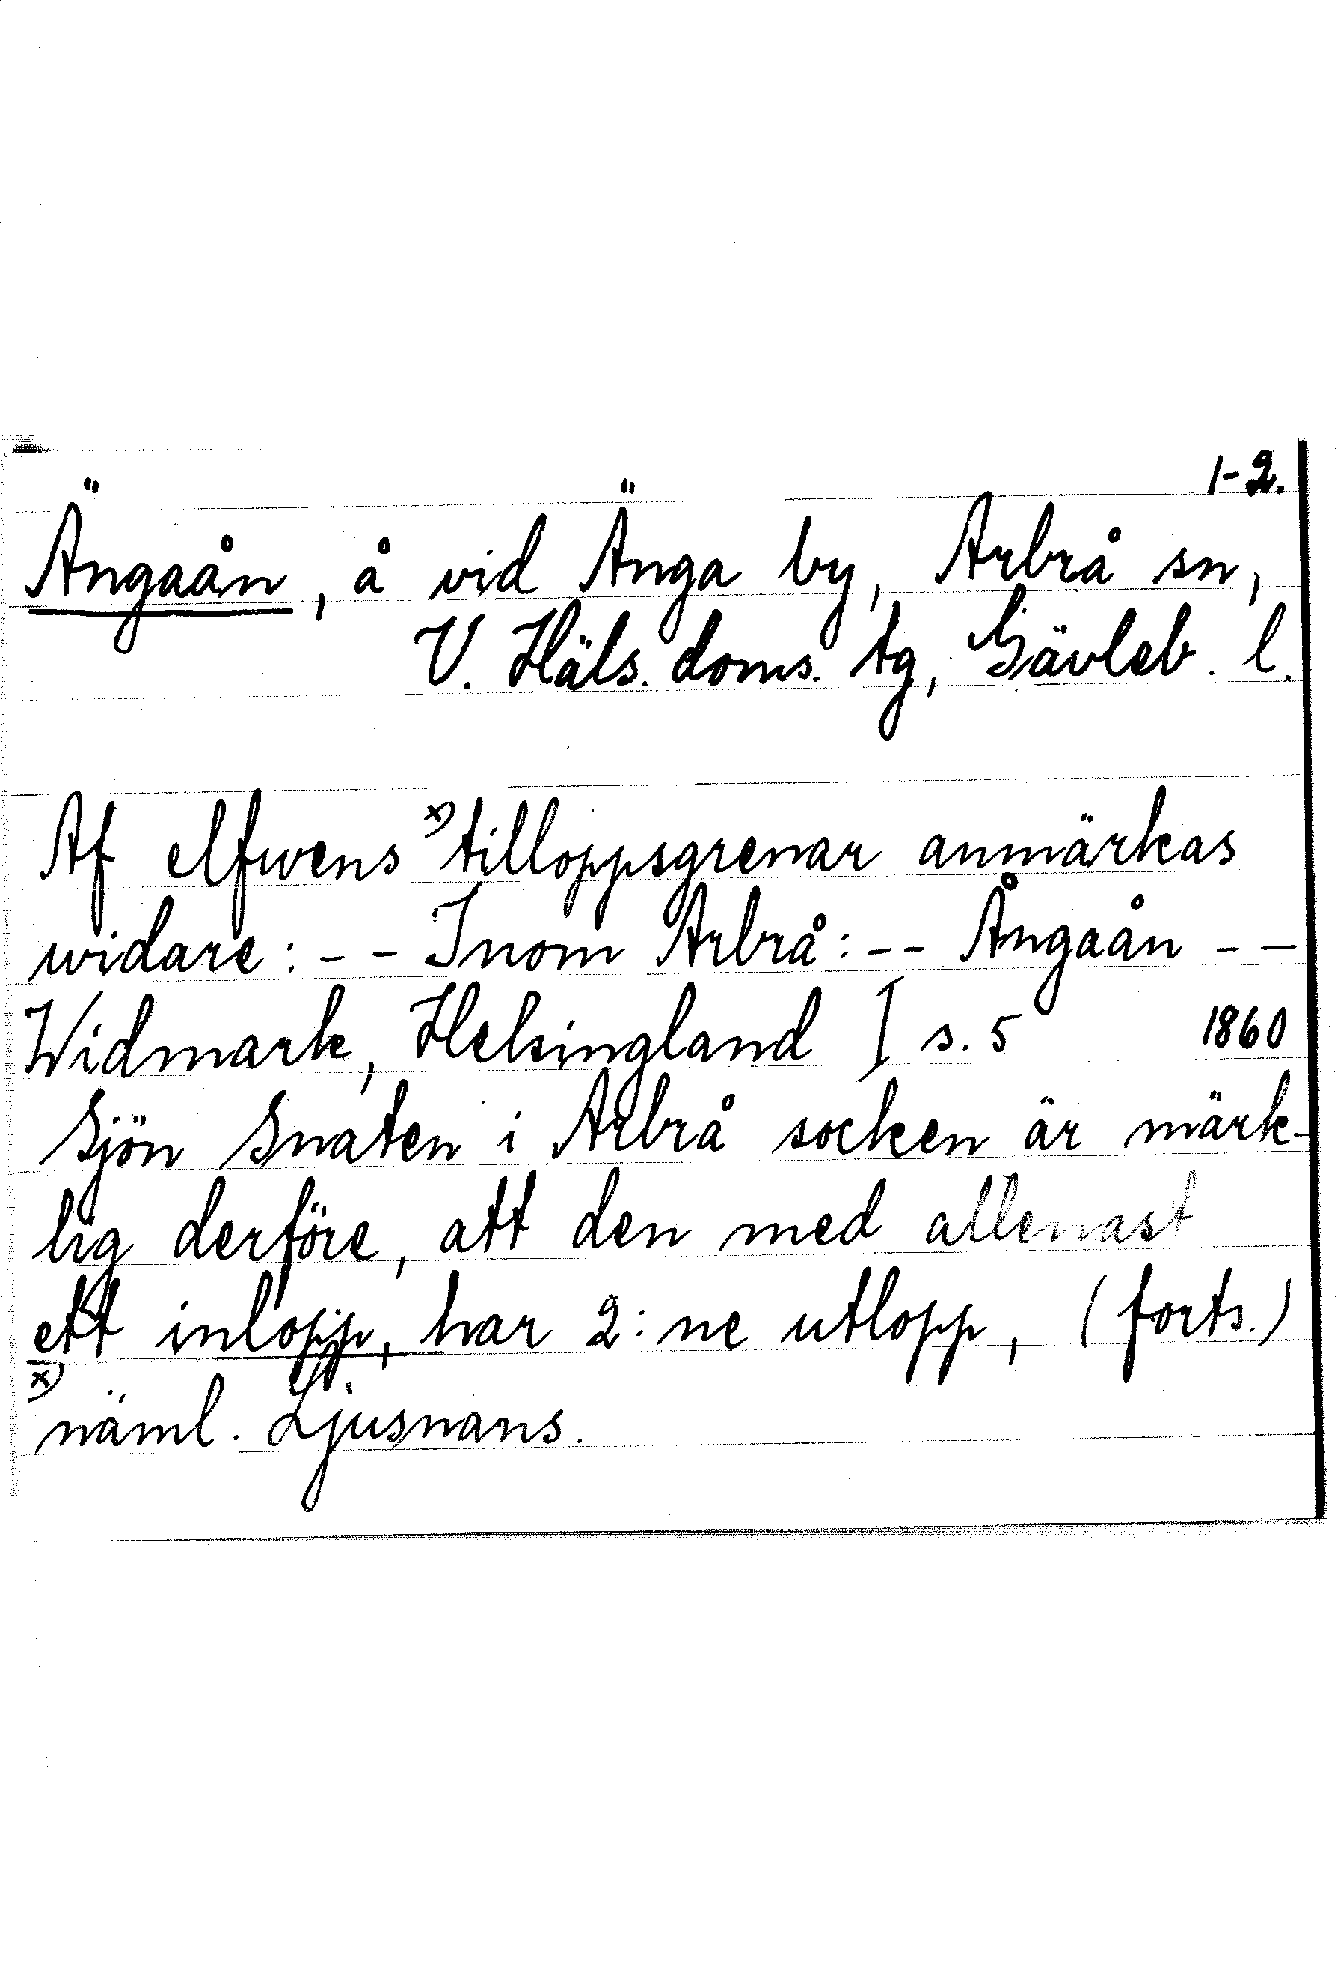 1-2.
Ängaån, å vid Änga by, Arbrå sn,
V. Häls. doms. tg, Gävleb. l.
Af elfwens x) tilloppsgrenar anmärkas
widare: - - Inom Arbrå: - - Ångaån - -
Widmark, Helsingland I s. 5 1860
Sjön Snaten i Arbrå socken är märk-
lig derföre, att den med allenast
ett inlopp, har 2:ne utlopp, (forts.)
x) näml. Ljusnans.